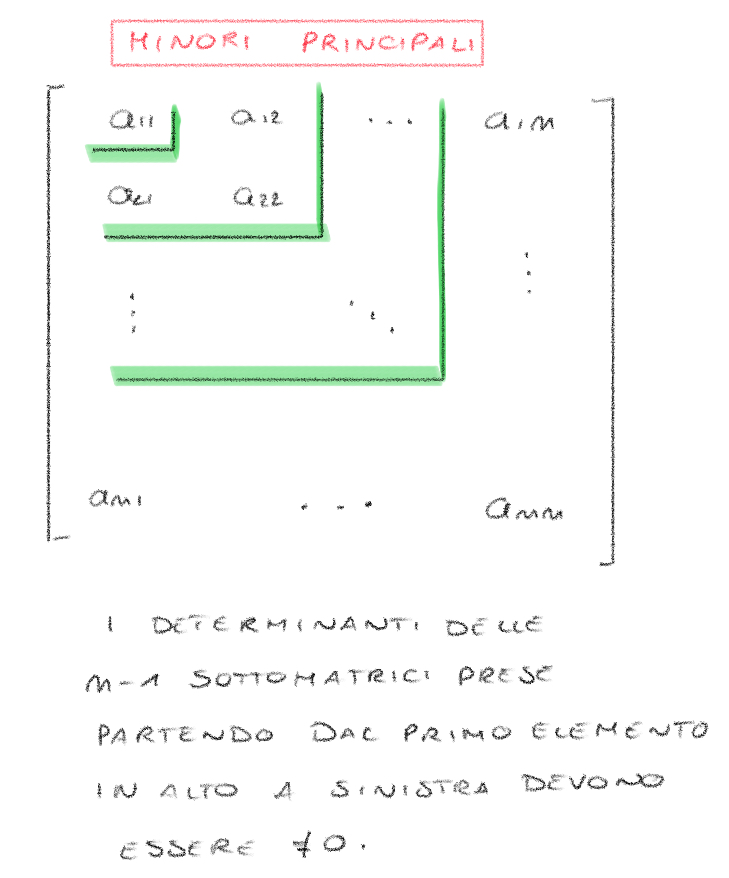 MINORI PRINCIPALI
a11 a12 ... a1n
a21 a22 ⋮
⋮ ⋱
an1 ... ann
I DETERMINANTI DELLE
n-1 SOTTOMATRICI PRESE
PARTENDO DAL PRIMO ELEMENTO
IN ALTO A SINISTRA DEVONO
ESSERE ≠0.